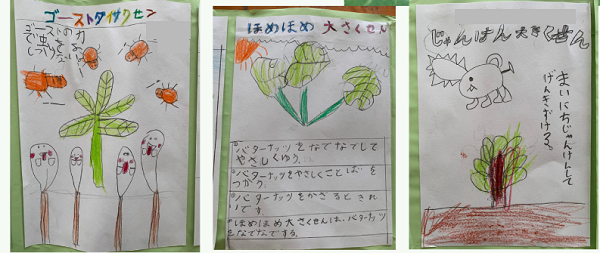 ゴーストダイサクセン
ほめほめ 大さくせん
°バターナッツをなでなでして
やさしくゆう。
°バターナッツをやさしくことばを
つかう。
°バターナッツをかざるときれ
いです。
°ほめほめ大さくせんは、バターナッツ
をなでなでする。
じゃんけん大さくせん
まいにちじゃんけんして
げんきずける。